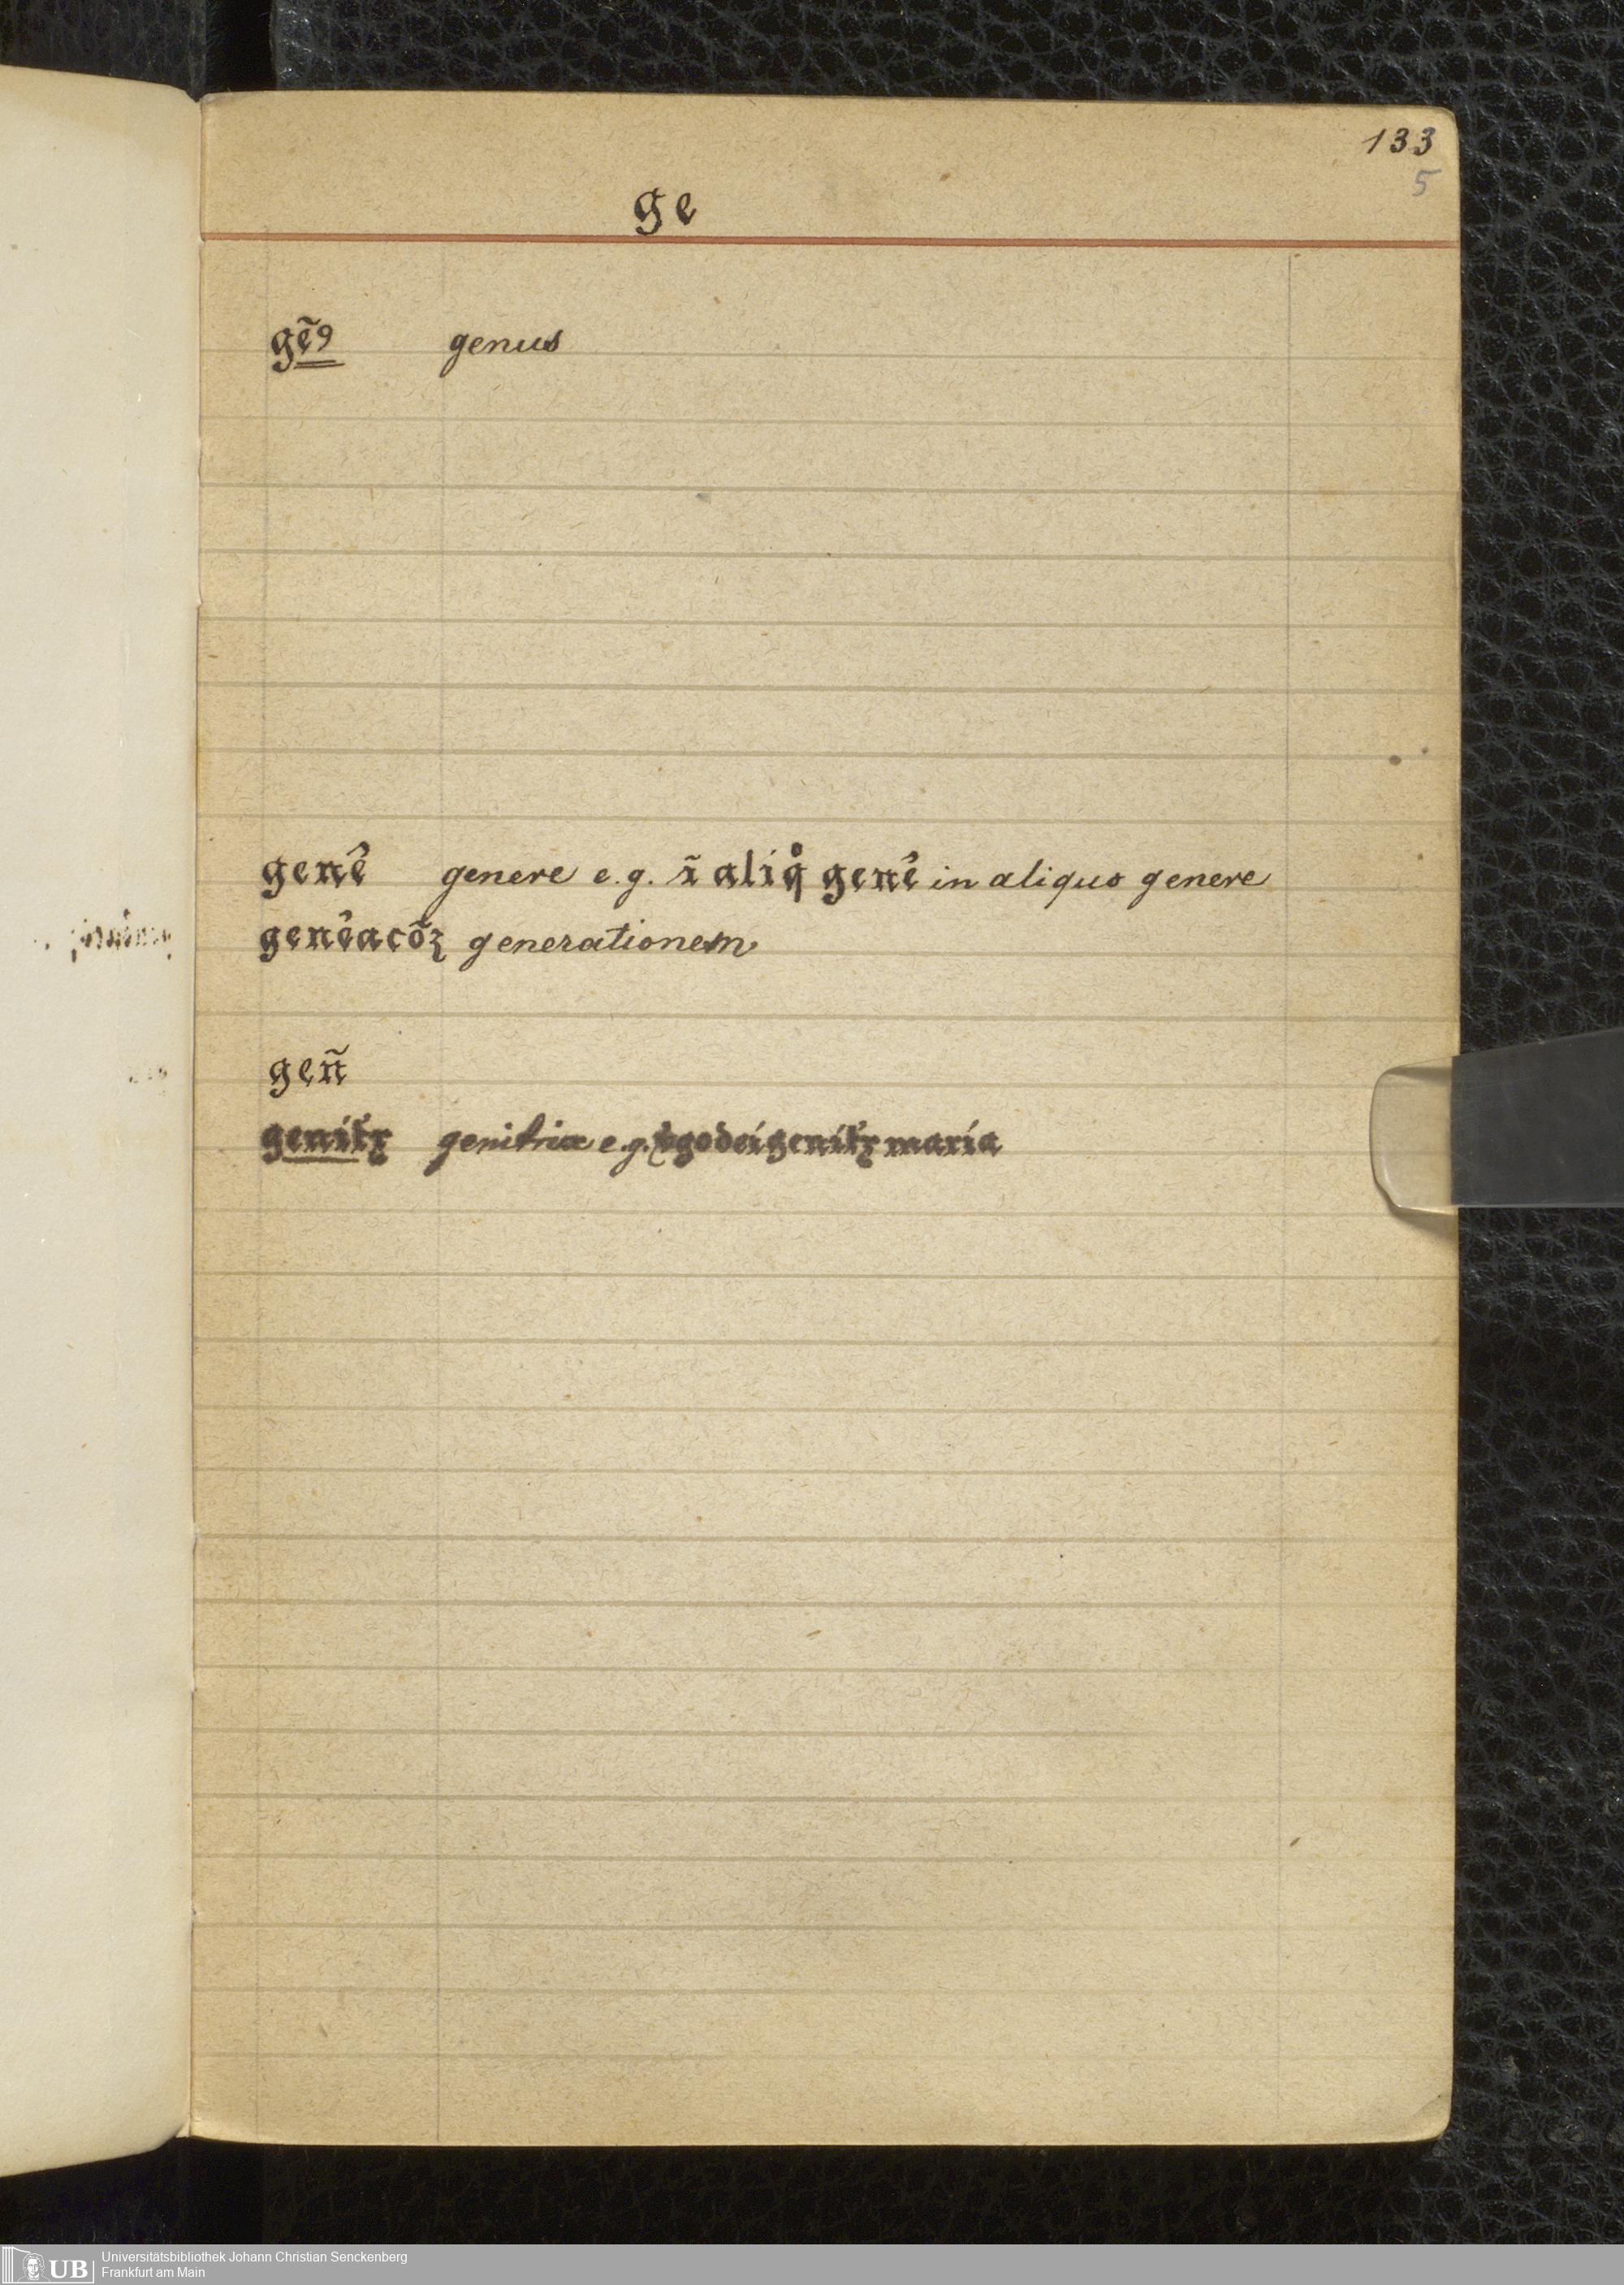 133
5
ge
gẽꝰ genus
genê genere e.g. ĩ aliq̊ genê in aliquo genere
genêacõꝫ generationem
geñ
genitͥx genitrix e.g. dei genitͥx maria
UB Universitätsbibliothek Johann Christian Senckenberg
Frankfurt am Main